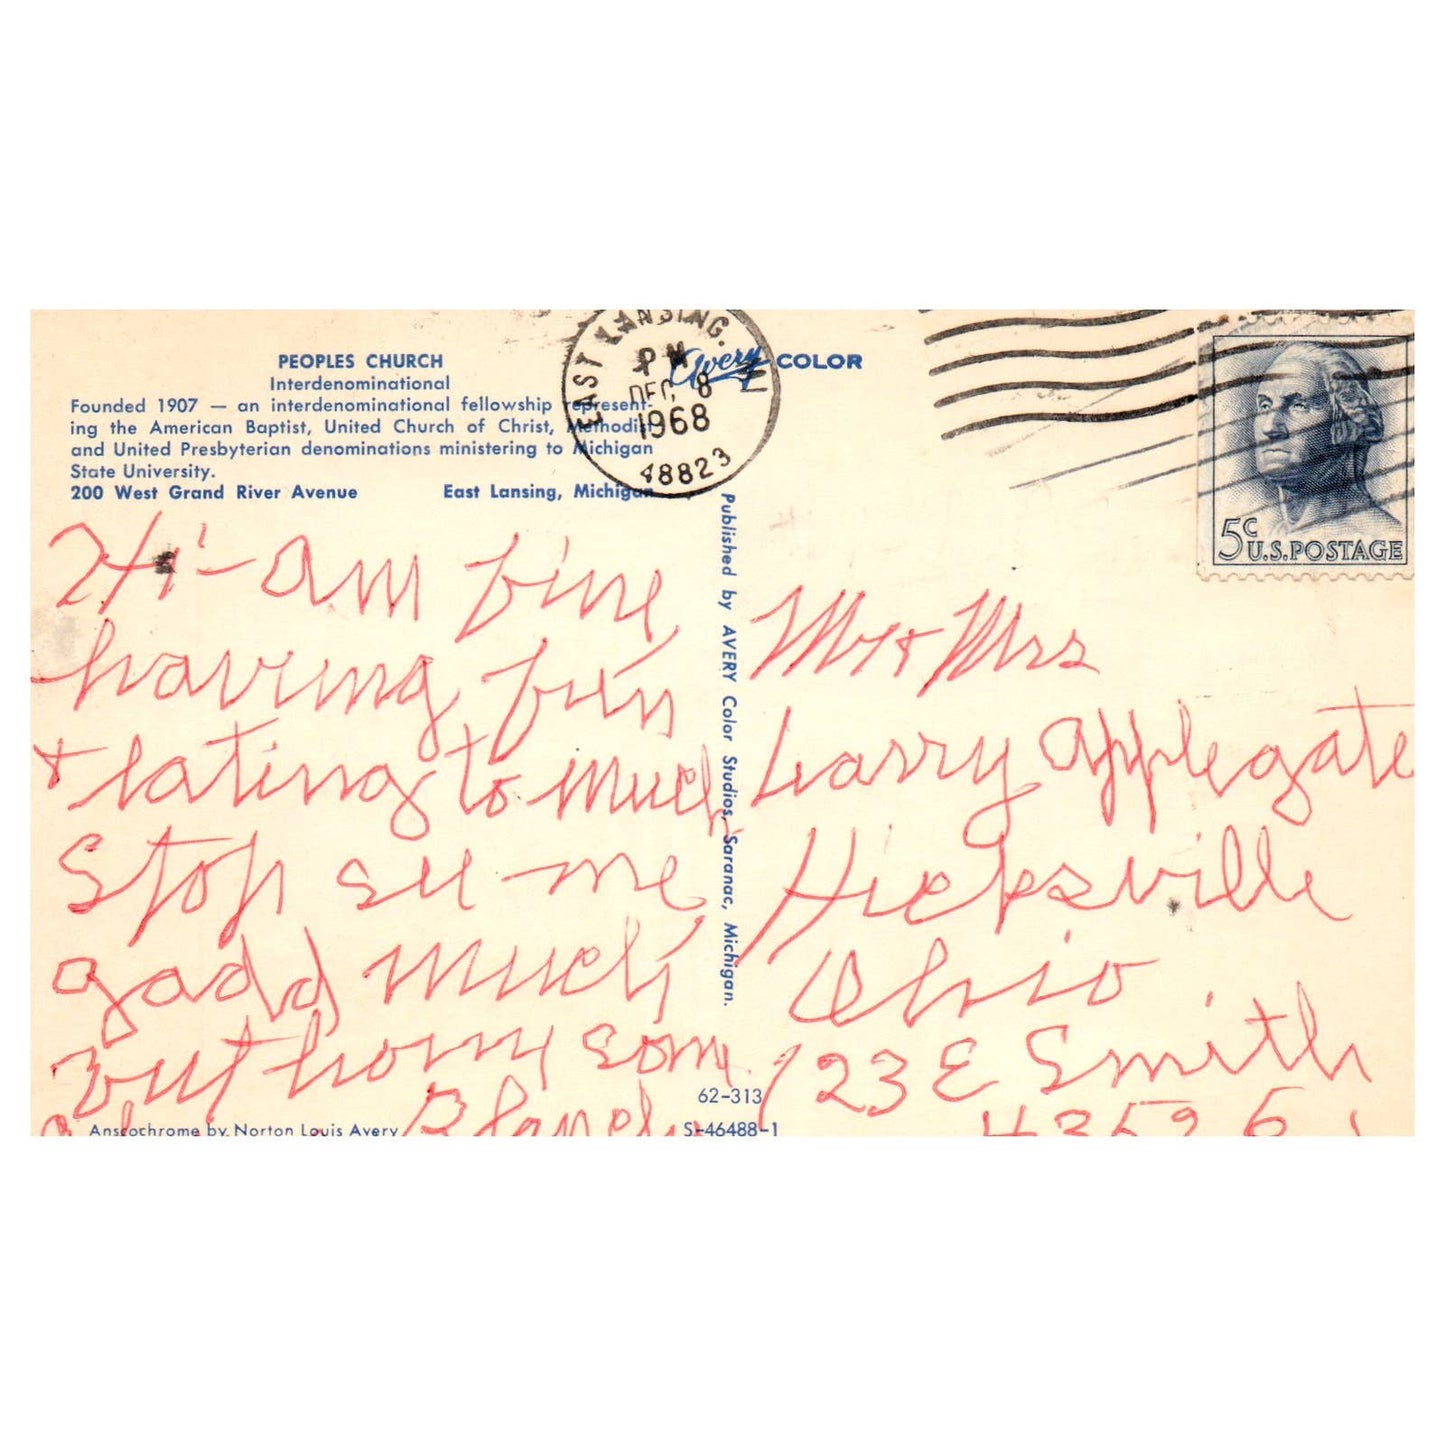 PEOPLES CHURCH
Interdenominational
Founded 1907 — an interdenominational fellowship represent-
ing the American Baptist, United Church of Christ, Methodist
and United Presbyterian denominations ministering to Michigan
State University.
200 West Grand River Avenue East Lansing, Michigan
EAST LANSING, MI
PM
DEC 8
1968
48823
Avery COLOR
5c U.S. POSTAGE
Hi - Am fine
having fun
+ eating to much
Stop see me
gadd much
But hom som
Blanch
Published by AVERY Color Studios, Saranac, Michigan.
Mr + Mrs
Larry Applegate
Hicksville
Ohio
123 E Smith
43526
62-313
Anscochrome by Norton Louis Avery
S-46488-1